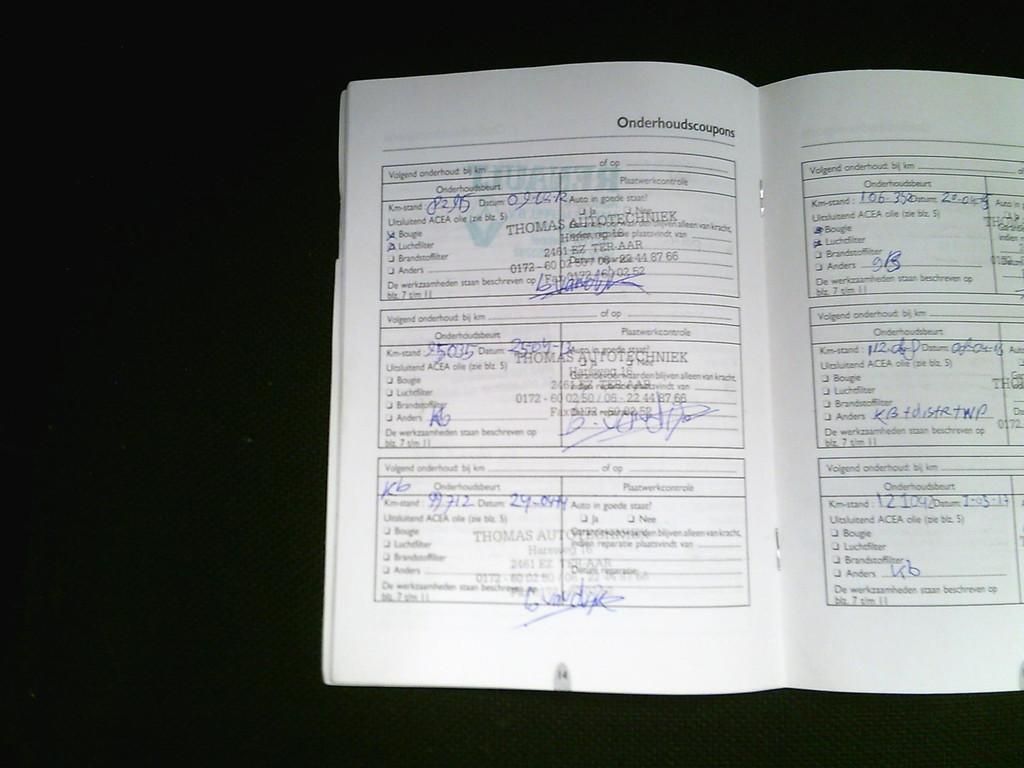 Onderhoudscoupons
Volgend onderhoud: bij km of op
Onderhoudsbeurt Plaatwerkcontrole
Km-stand Datum: Auto in goede staat?
Uitsluitend ACEA olie (zie blz. 5) Ja Nee
Bougie
Luchtfilter
Brandstoffilter
Anders
De werkzaamheden staan beschreven op
blz. 7 t/m 11
THOMAS AUTOTECHNIEK
Hareweg 16
2461 EZ TER-AAR
0172 - 60 02 50 / 06 - 22 44 87 66
Fax 0172 - 60 02 52
Volgend onderhoud: bij km of op
Onderhoudsbeurt Plaatwerkcontrole
Km-stand : 95035 Datum: Auto in goede staat?
Uitsluitend ACEA olie (zie blz. 5) Ja Nee
Bougie
Luchtfilter
Brandstoffilter
Anders Kb
De werkzaamheden staan beschreven op
blz. 7 t/m 11
THOMAS AUTOTECHNIEK
Hareweg 16
2461 EZ TER-AAR
0172 - 60 02 50 / 06 - 22 44 87 66
Fax 0172 - 60 02 52
Volgend onderhoud: bij km of op
Kb Onderhoudsbeurt Plaatwerkcontrole
Km-stand : 99712 Datum: 24-04-14 Auto in goede staat?
Uitsluitend ACEA olie (zie blz. 5) Ja Nee
Bougie Garantievoorwaarden blijven alleen van kracht,
Luchtfilter indien reparatie plaatsvindt van
Brandstoffilter
Anders Datum reparatie:
De werkzaamheden staan beschreven op
blz. 7 t/m 11
THOMAS AUTOTECHNIEK
Hareweg 16
2461 EZ TER-AAR
0172 - 60 02 50 / 06 - 22 44 87 66
G van dijk
14
Volgend onderhoud: bij km
Onderhoudsbeurt
Km-stand : 106.350 Datum: Auto in
Uitsluitend ACEA olie (zie blz. 5)
Bougie
Luchtfilter
Brandstoffilter
Anders GB
De werkzaamheden staan beschreven op
blz. 7 t/m 11
Volgend onderhoud: bij km
Onderhoudsbeurt
Km-stand : Datum:
Uitsluitend ACEA olie (zie blz. 5)
Bougie
Luchtfilter
Brandstoffilter
Anders KB + distr + WP
De werkzaamheden staan beschreven op
blz. 7 t/m 11
Volgend onderhoud: bij km
Onderhoudsbeurt
Km-stand : 121042 Datum:
Uitsluitend ACEA olie (zie blz. 5)
Bougie
Luchtfilter
Brandstoffilter
Anders Kb
De werkzaamheden staan beschreven op
blz. 7 t/m 11